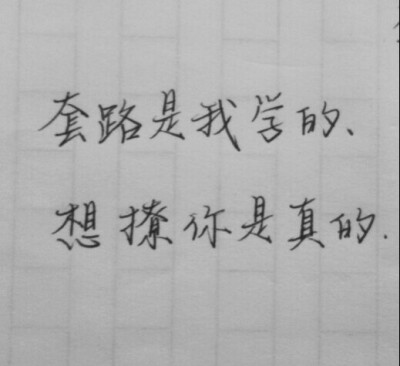 套路是我学的、
想撩你是真的.